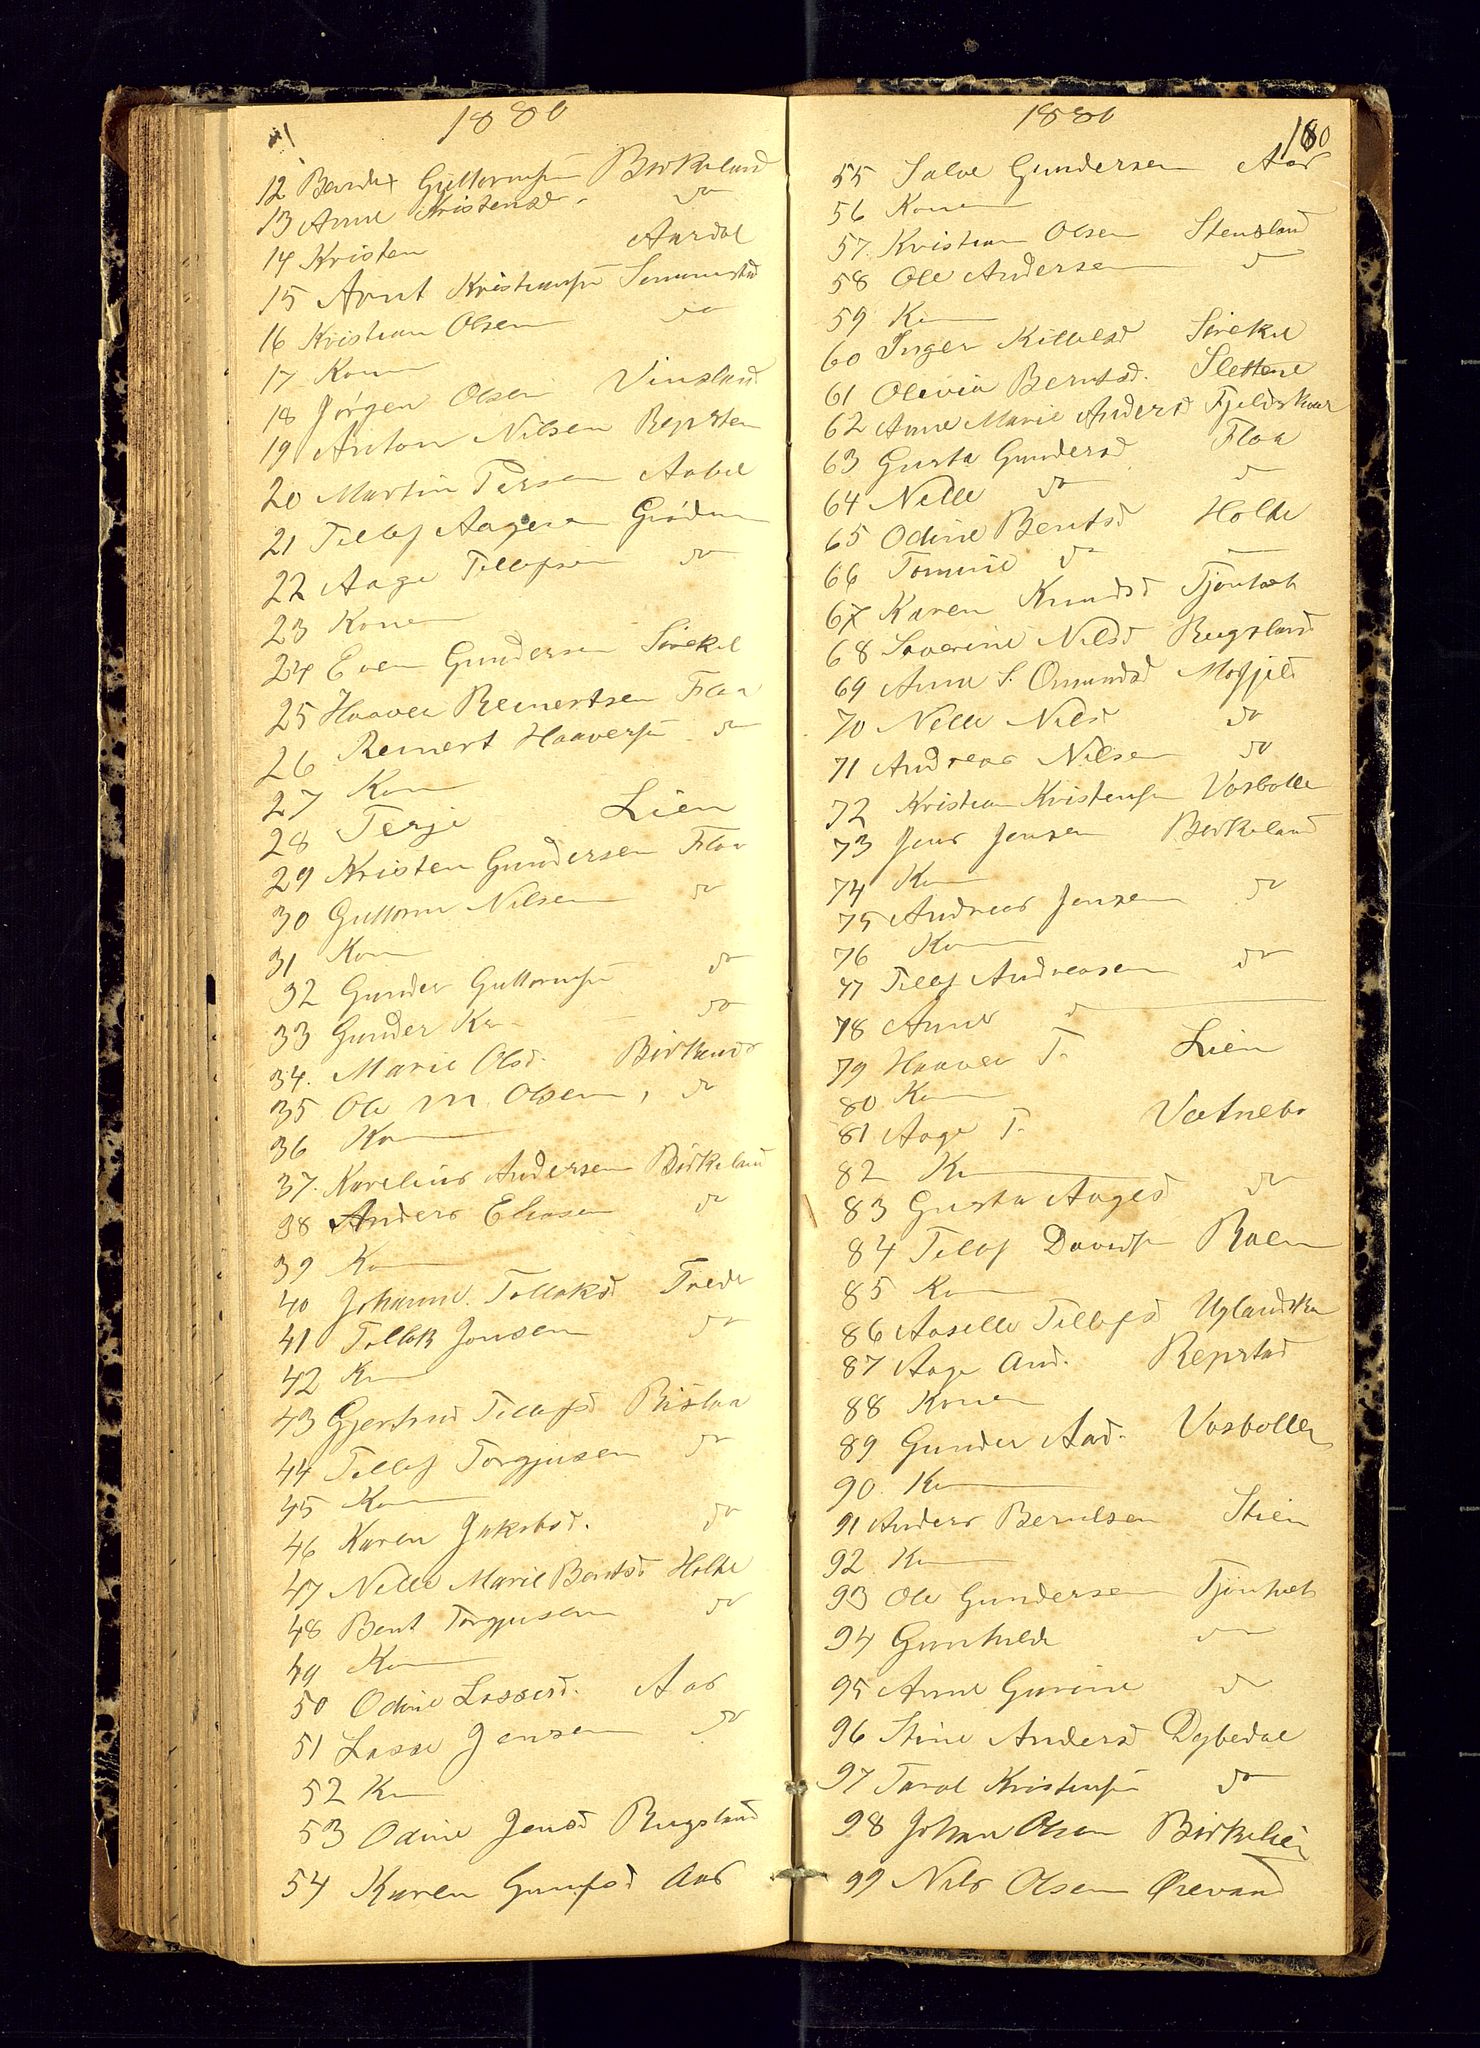 1886
12 Guttormsen Birkeland
13 Anne Kristensd. do
14 Kristen Aardal
15 Arnt Kristiansen
16 Kristian Olsen do
17 Konen
18 Jørgen Olsen Vinsland
19 Anton Nilsen Repsten
20 Martin Persen Aabel
21 Tellef Aagesen
22 Aage Tellefsen do
23 Konen
24 Even Gundersen Sirekel
25 Haaver Reinertsen Flaa
26 Reinert Haaversen do
27 Kon
28 Terje Lien
29 Kristen Gundersen Flaa
30 Guttorm Nilsen do
31 Kon
32 Gunder Guttormsen do
33 Gunder do
34. Marie Olsd. Birkeland
35 Ole M. Olsen, do
36 Kon
37. Karelius Andersen Birkeland
38 Anders Eliasen do
39 Kon
40 Johanne Tellaksd
41 Tellak Jensen do
42 Kn
43 Gjertrud Tellefsd
44 Tellef Torgjusen do
45 Kon
46 Karen Jakobsd. do
47 Nelle Marie Bentsd Holte
48 Bent Torgjusen do
49 Kon
50 Odine Lassesd. Aas
51 Lasse Jensen do
52 Kn
53 Odine Jensd Rugsland
54 Karen Aas
1886
180
55 Salve Gundersen Aas
56 Konen
57. Kristian Olsen Stensland
58 Ole Andersen do
59 Kn
60 Inger Sirekel
61 Olevia Berntsd. Slettene
62 Anne Marie Andersd Fjeldskaar
63 Gusta Gundersd Flaa
64 Nelle do do
65 Odine Bentsd Holte
66 Tomine do
67 Karen Knudsd Tjønhøl
68 Severine Nilsd Rugsland
69 Anne S. Omundsd Mosfjeld
70 Nelle Nilsd do
71 Andreas Nilsen do
72 Kristian Kristensen Vasbotten
73 Jens Jensen Birkeland
74 Kn
75 Andreas Jensen do
76 Kn
77 Tellef Andreasen do
78 Anne do
79 Haaver T. Lien
80 Kn
81 Aage T. Vatnebo
82 Kn
83 Gusta Aagesd do
84 Tellef Davidsen
85 Kn
86 Aaselle Tellefsd
87 Aage And. Repstad
88 Konen
89 Gunder Aad. Vasbotten
90. Kn
91 Anders Berntsen Stien
92. Kn
93 Ole Gundersen Tjønhøl
94 Gunhilde do
95 Anne Gurine do
96 Stine Andersd Dybedal
97 Taral Kristensen do
98 Johan Olsen Birkelien
99 Nils Olsen Ørevand